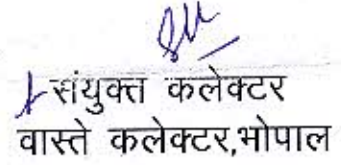 संयुक्त कलेक्टर
वास्ते कलेक्टर,भोपाल